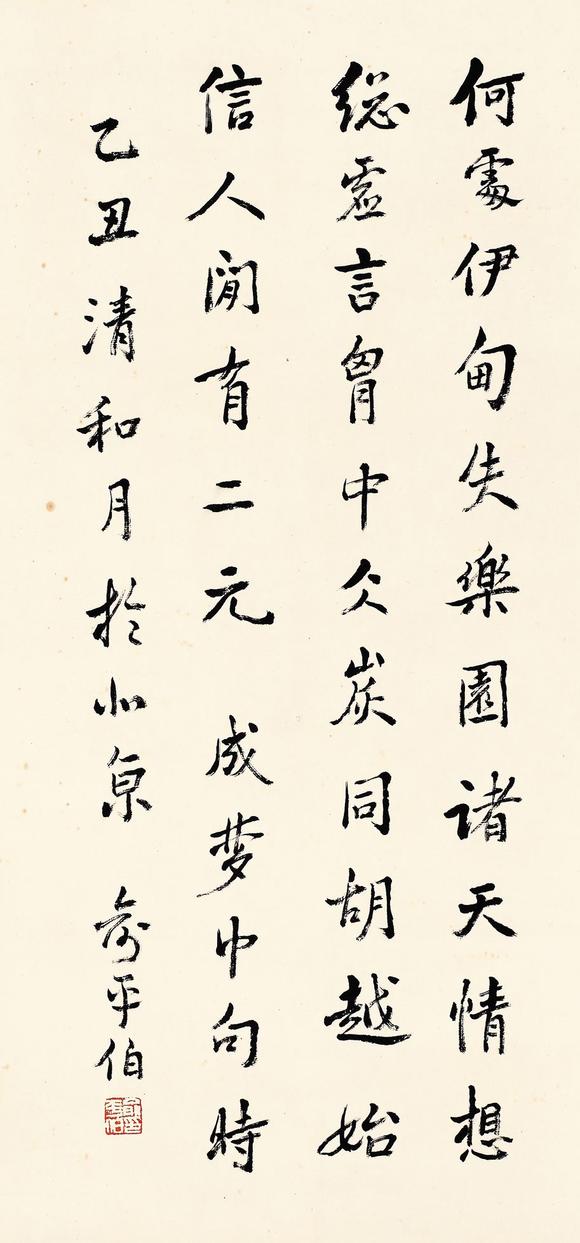 何處伊甸失樂園諸天情想
緫虛言胷中仌炭同胡越始
信人閒有二元 成夢中句時
乙丑清和月於北京 俞平伯